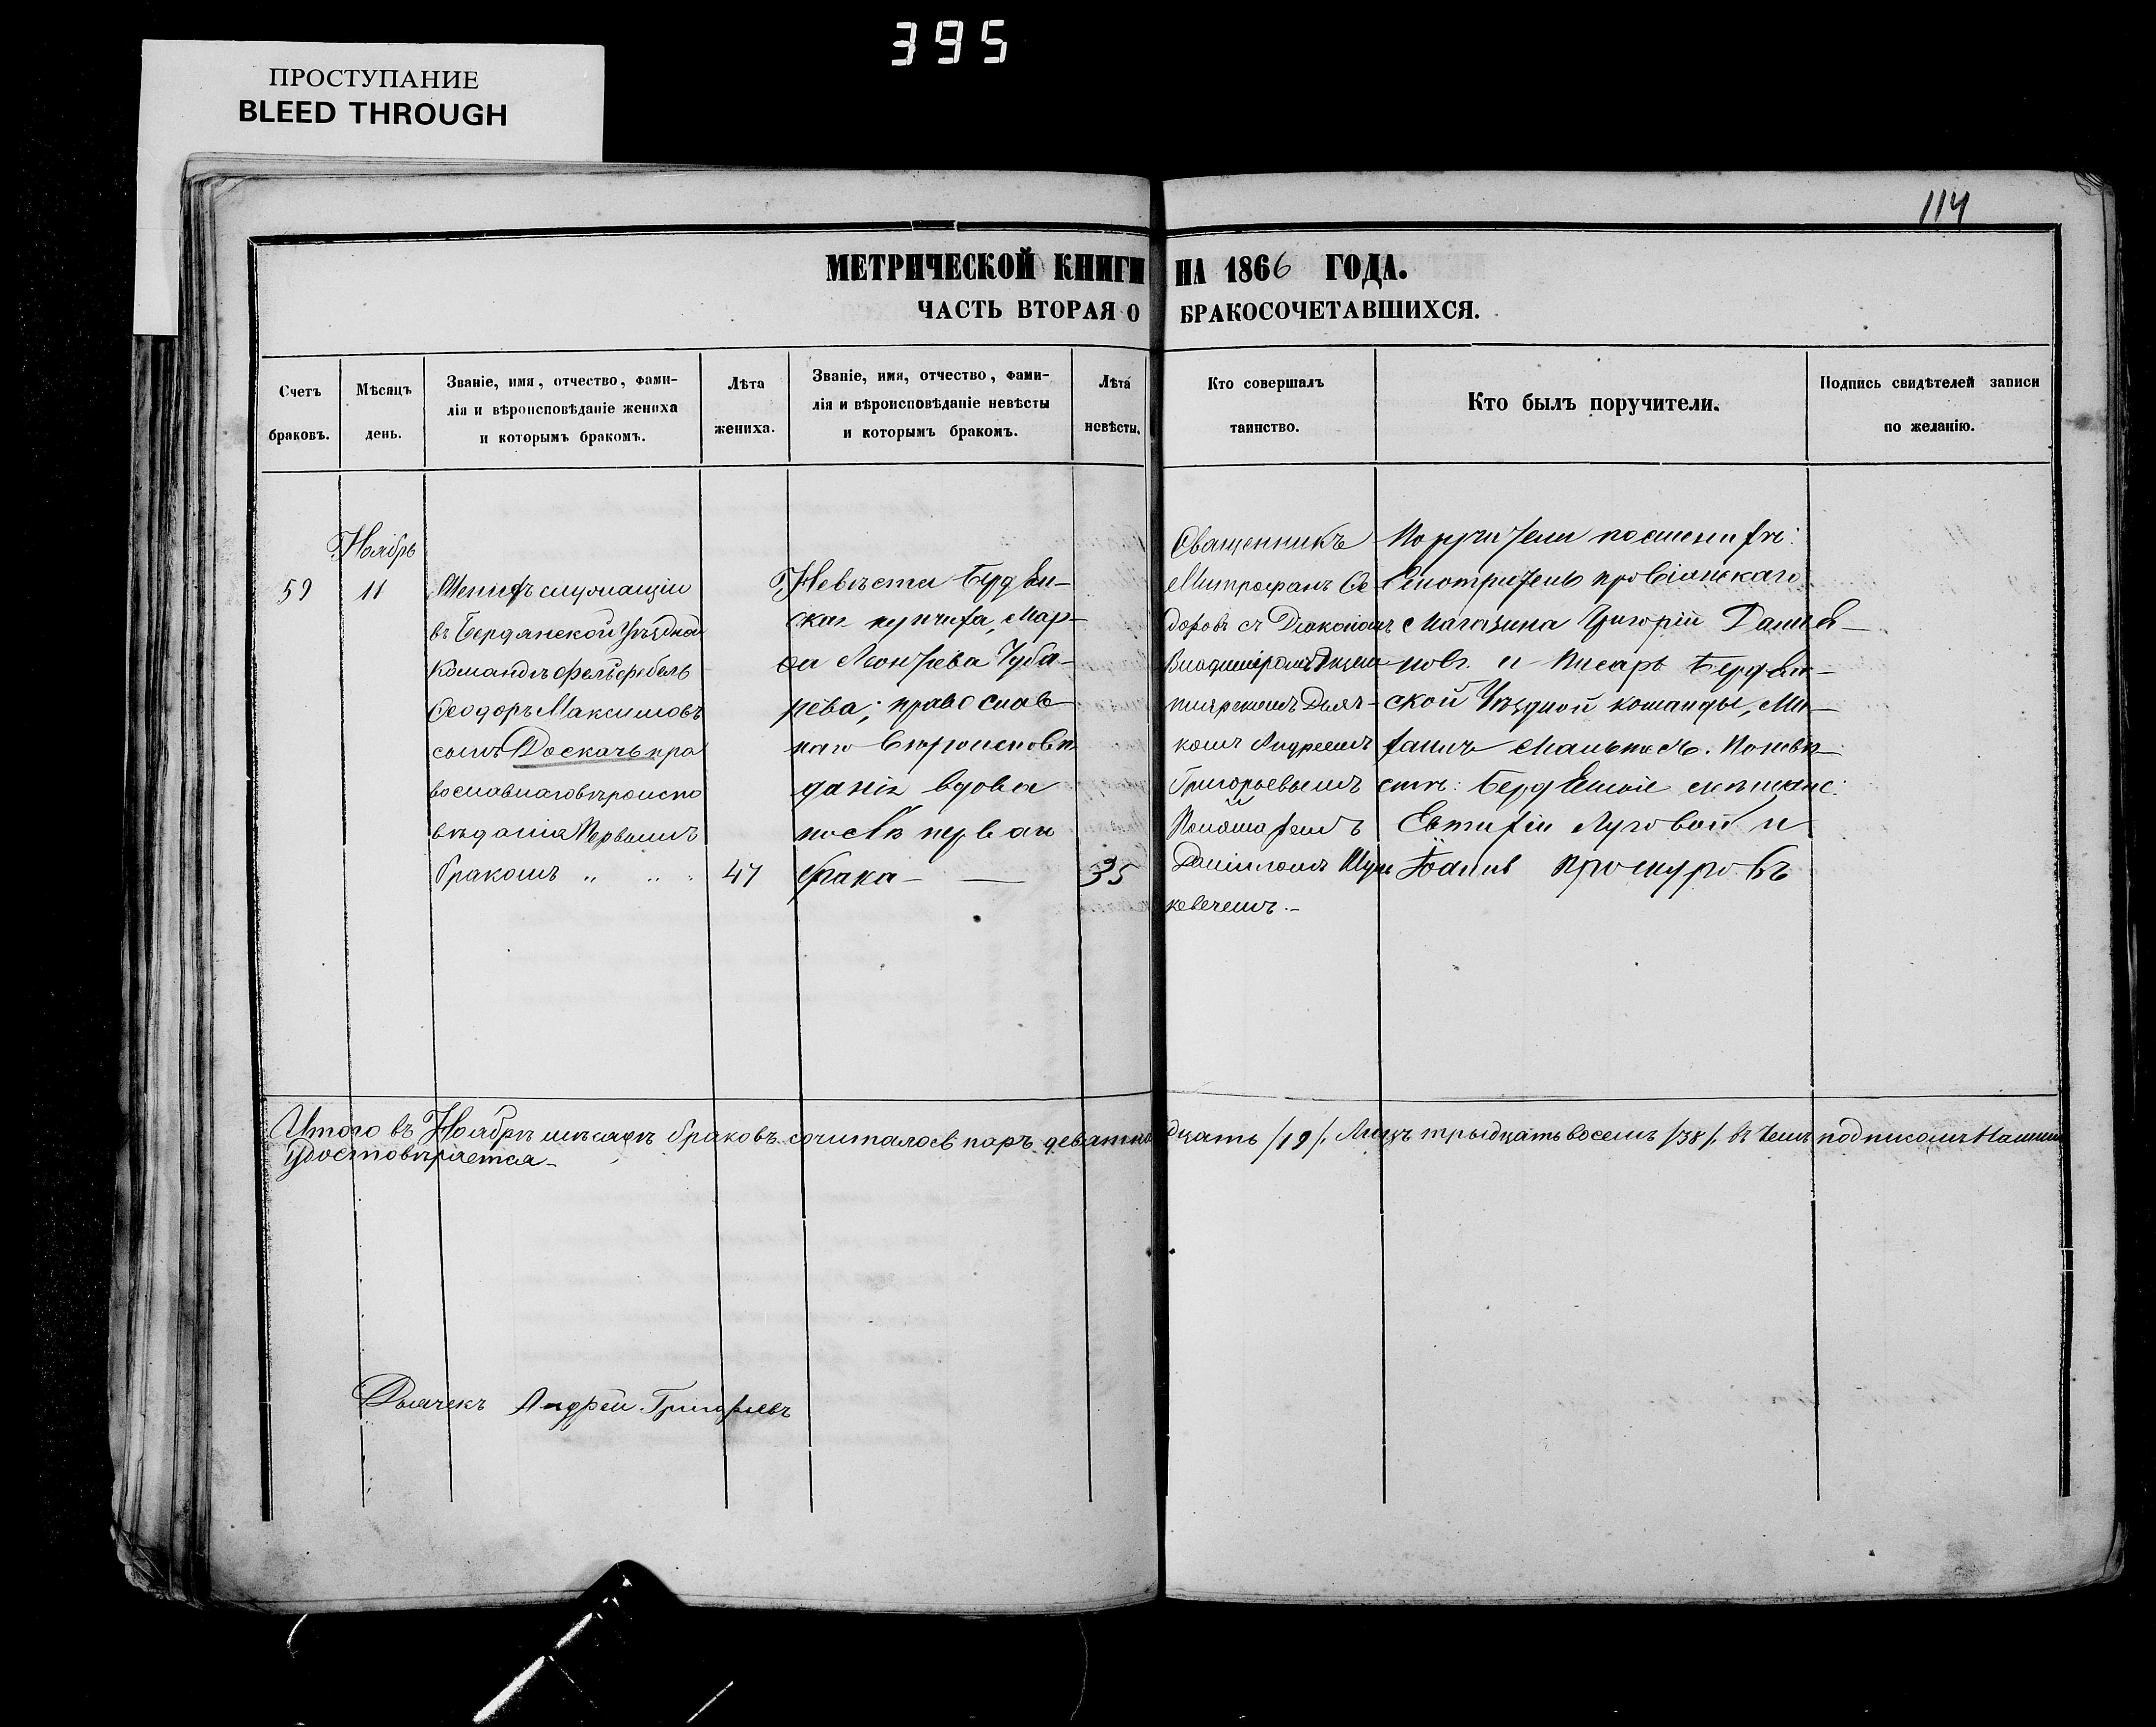 395
ПРОСТУПАНИЕ
BLEED THROUGH
114
МЕТРИЧЕСКОЙ КНИГИ НА 1866 ГОДА.
ЧАСТЬ ВТОРАЯ О БРАКОСОЧЕТАВШИХСЯ.
Счетъ
браковъ.
Мѣсяцъ
день.
Званіе, имя, отчество, фами-
лія и вѣроисповѣданіе жениха
и которымъ бракомъ.
Лѣта
жениха.
Званіе, имя, отчество, фами-
лія и вѣроисповѣданіе невѣсты
и которымъ бракомъ.
Лѣта
невѣсты.
Кто совершалъ
таинство.
Кто былъ поручители.
Подпись свидѣтелей записи
по желанію.
59
Ноябрь
11
Женихъ служащій
въ Бердянской Уѣздной
Командѣ фельдфебель
Ѳеодоръ Максимовъ
сынъ Доскачь пра
вославнаго вѣроиспо
вѣданія Первымъ
бракомъ
47
Невѣста Бердян-
ская купчиха, Мар-
ѳа Леонтіева Чуба-
рева; православ-
наго вѣроисповѣ
данія вдова
послѣ перваго
брака
35
Священникъ
Митрофанъ Ѳе
доровъ съ Діакономъ
Владиміромъ
Дьяч-
комъ Андреемъ
Григорьевымъ
Пономаремъ
Даніиломъ Шуль
кевечемъ.
Поручители по женихѣ:
Смотритель провіанскаго
Магазина Григорій Данил
овъ и Писарь Бердян-
ской Уѣздной команды,
По невѣ
стѣ: Бердянскіе мѣщане:
Евтифій Луговой и
Іоаннъ Прокуровъ
Итого въ Ноябрѣ мѣсяцѣ браковъ сочиталось паръ девятнадцать /19/. Лицъ трыдцать восемъ /38/. въ чемъ подписомъ Нашим
Удостовѣряется
Дьячекъ Андрей Григорьевъ